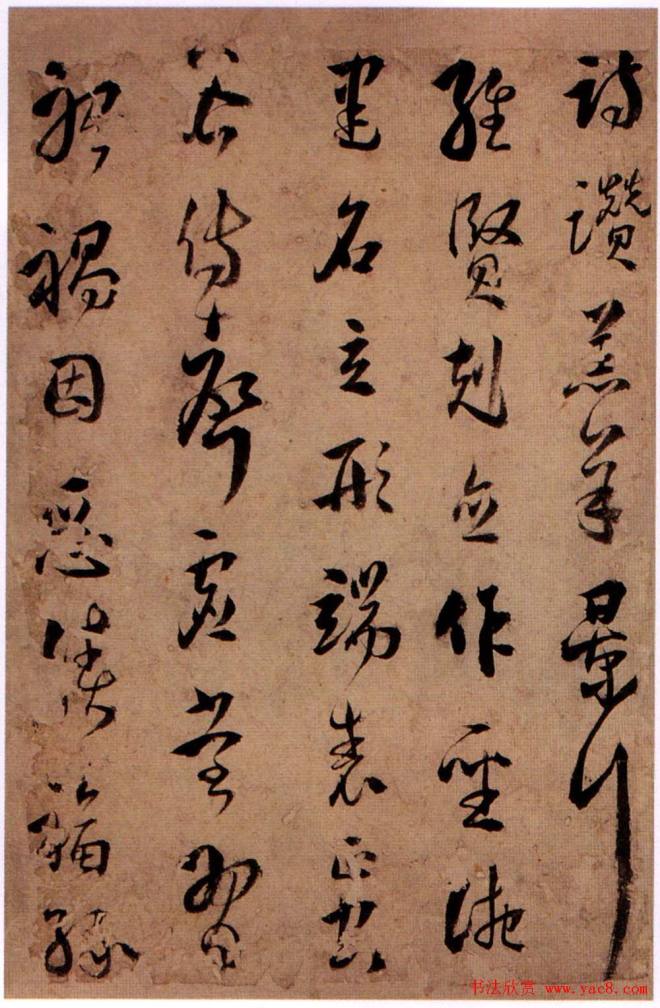 詩讚羔羊景行
維賢剋念作聖德
建名立形端表正空
谷傳聲虛堂習
聽禍因惡積福緣
书法欣赏 www.yac8.com